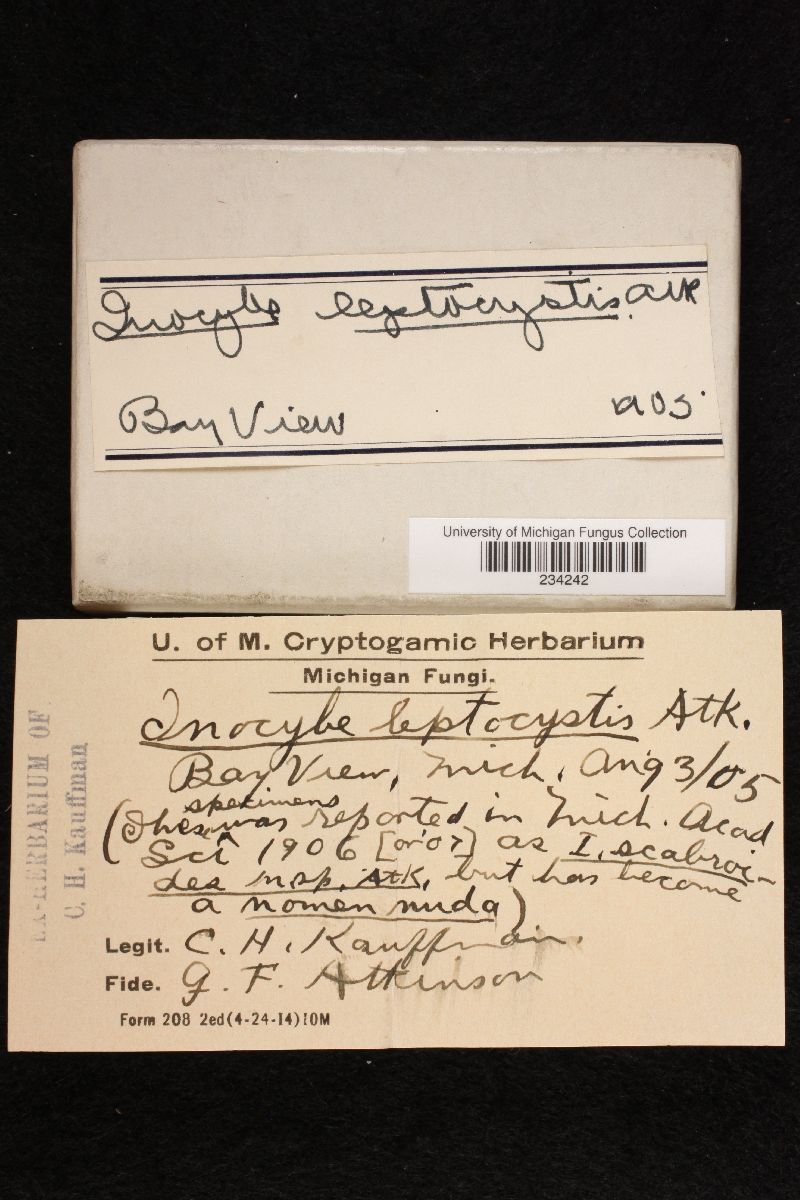 Inocybe leptocystis Atk
Bay View 905
University of Michigan Fungus Collection
234242
U. of M. Cryptogamic Herbarium
Michigan Fungi.
Inocybe leptocystis Atk.
Bay View, Mich, Aug 3/05
specimens
(These was reported in Mich. Acad
Sci 1906 [or '07] as I. scabroi-
des n.sp. Atk, but has become
a nomen nuda)
Legit. C. H. Kauffman.
Fide. G. F. Atkinson
Form 208 2ed(4-24-14)10M
EX-HERBARIUM OF
C. H. Kauffman